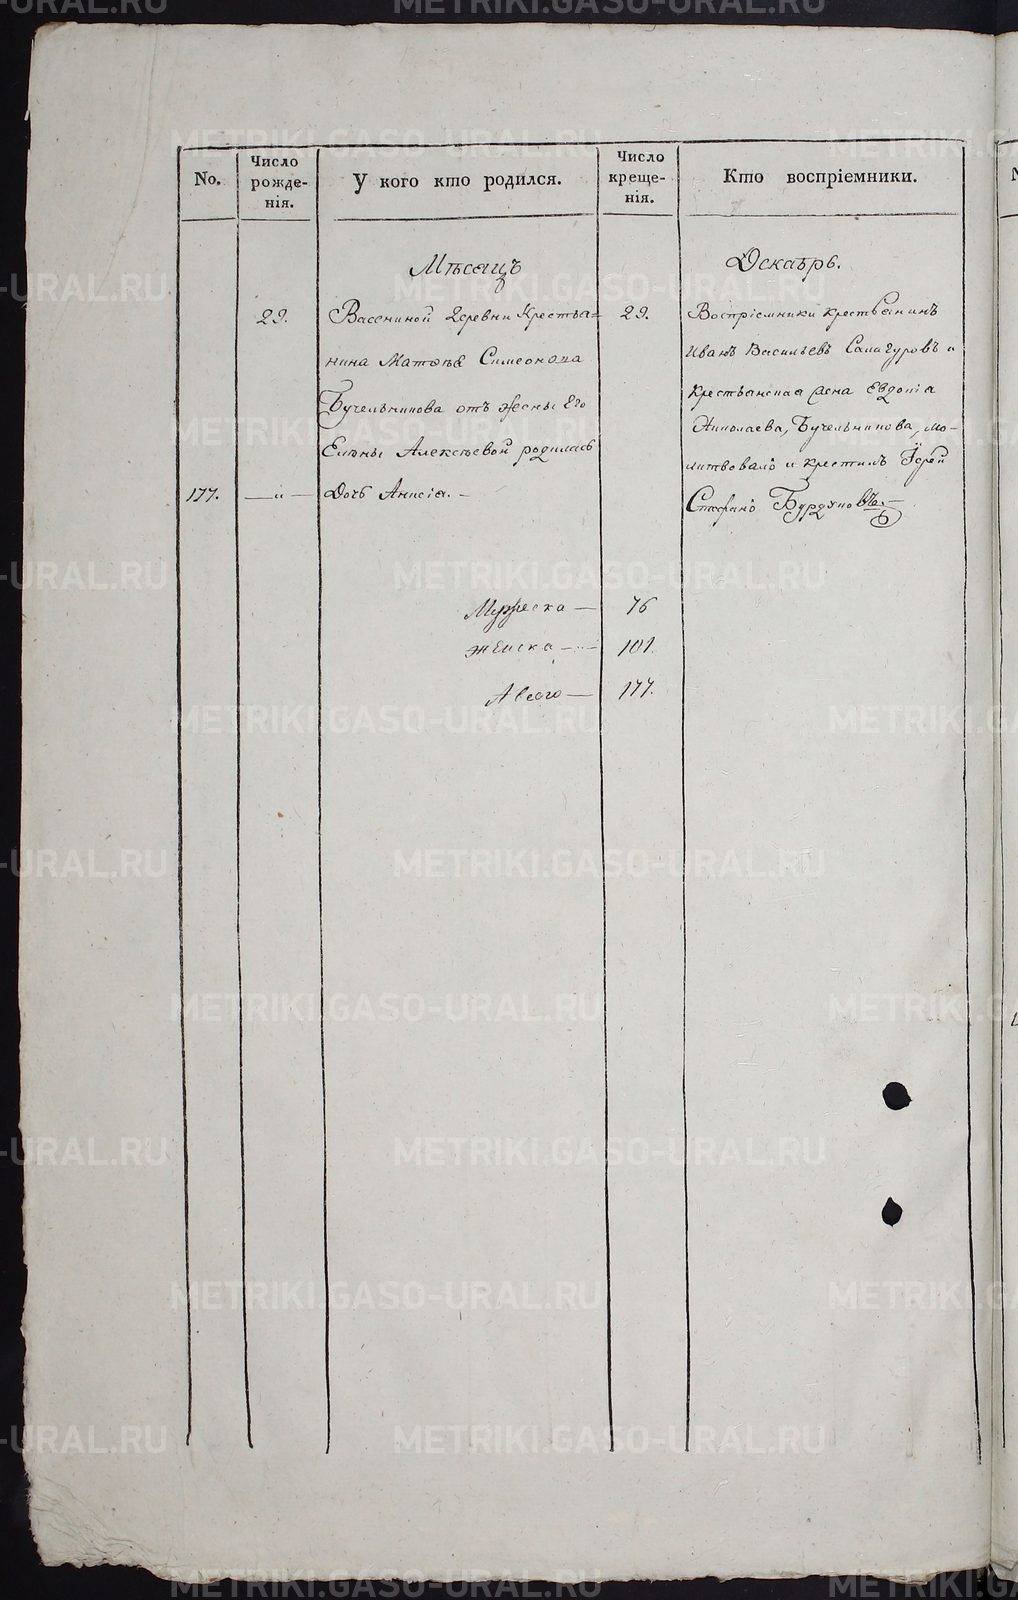 No.
Число рожде-нія.
У кого кто родился.
Число креще-нія.
Кто воспріемники.
Мѣсяцъ
Декабрь.
29.
Васениной деревни Крестья=
нина Матвѣя Симеонова
Бучельникова отъ жены Его
Елены Алексѣевой родилась
177.
—„—
Дочь Анисія. —
29.
Воспріемники крестьянинъ
Иванъ Васильевъ Самагуровъ и
крестьянская жена Евдокія
Николаева, Бучельникова, мо-
литвовалъ и крестилъ Іерей
Стефанъ
Мужеска — 76
Женска — 101
А всего — 177.
METRIKI.GASO-URAL.RU